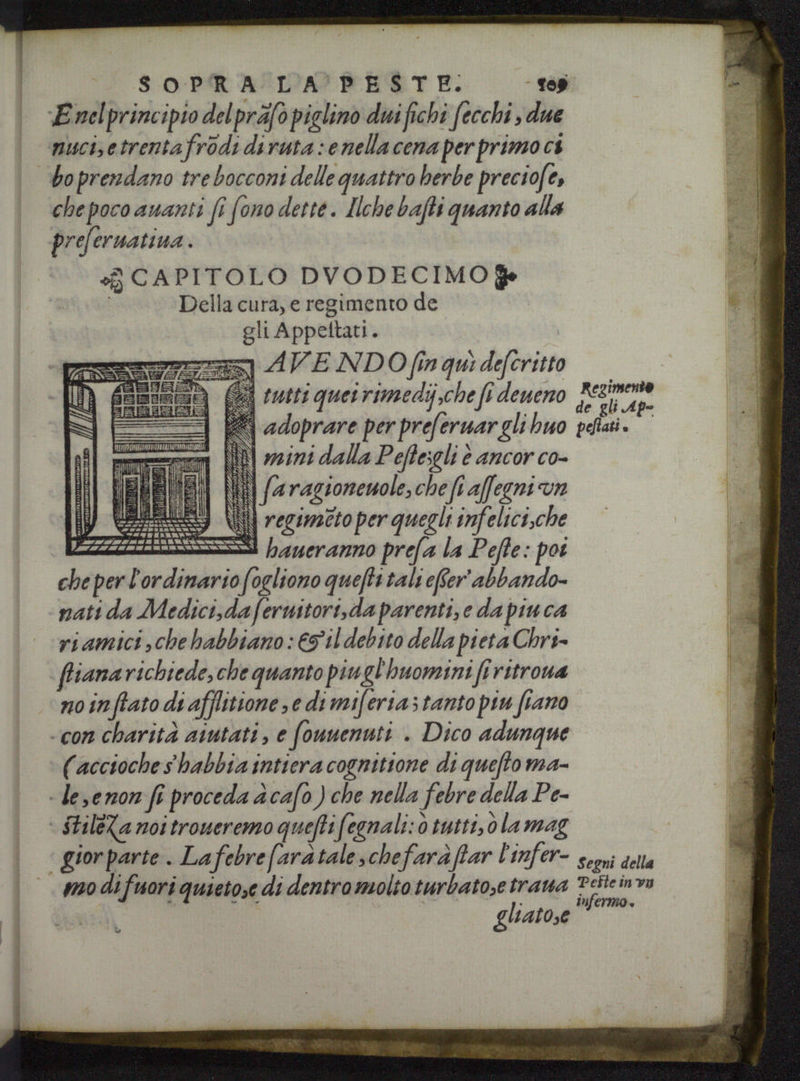 SOPRA LA PESTE. 109
E nel principio del prãſo piglino dui fichi ſecchi, due
nuci, e trenta frõdi di ruta: e nella cena per primo ci
bo prendano tre bocconi delle quattro herbe precioſe,
che poco auanti ſi ſono dette. Ilche baſti quanto alla
preſeruatiua.
CAPITOLO DVODECIMO
Della cura, e regimento de
gli Appeſtati.
HAVENDO ſin quì deſcritto
tutti quei rimedij, che ſi deueno
adoprare per preſeruar gli huo
mini dalla Peſte; gli è ancor co-
ſa ragioneuole, che ſi aſſegni vn
regimẽto per quegli infelici, che
haueranno preſa la Peſte: poi
che per l'ordinario ſogliono queſti tali eſſer' abbando-
nati da Medici, da ſeruitori, da parenti, e da piu ca
ri amici, che habbiano: & il debito della pietà Chri-
ſtiana richiede, che quanto piu gl'huomini ſi ritroua
no in ſtato di afflitione, e di miſeria; tanto piu ſiano
con charità aiutati, e ſouuenuti. Dico adunque
(accioche s'habbia intiera cognitione di queſto ma-
le, e non ſi proceda à caſo) che nella febre della Pe-
ſtilẽza noi troueremo queſti ſegnali: ò tutti, ò la mag
gior parte. La febre ſarà tale, che farà ſtar l'infer-
mo di fuori quieto, e di dentro molto turbato, e traua
gliato, e
Regimento
de gli Ap-
peſtati.
Segni della
Peſte in vn
infermo.